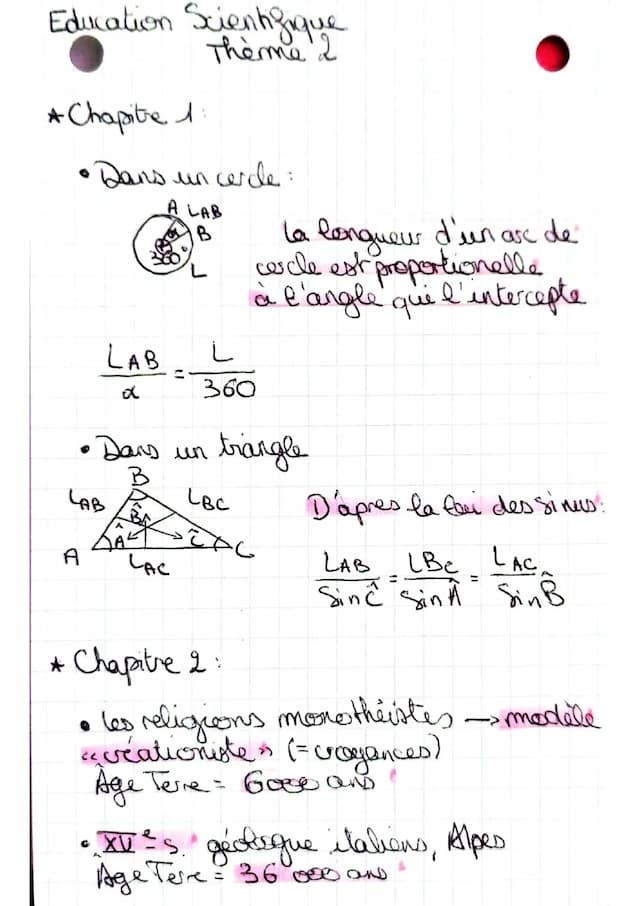 Education Scientifique
Thème 2
★ Chapitre 1:
• Dans un cercle:
A LAB
B
α
360°
L
La longueur d'un arc de
cercle est proportionelle
à l'angle qui l'intercepte
LAB/α = L/360
• Dans un triangle
B
LAB LBC
B̂
A Â Ĉ C
LAC
D'après la loi des sinus:
LAB/Sin Ĉ = LBC/Sin Â = LAC/Sin B̂
★ Chapitre 2:
• Les religions monothéistes → modèle
"créationiste" (= croyances)
Âge Terre = 6000 ans
• XVe s. géologue italiens, Alpes
Âge Terre = 36 000 ans